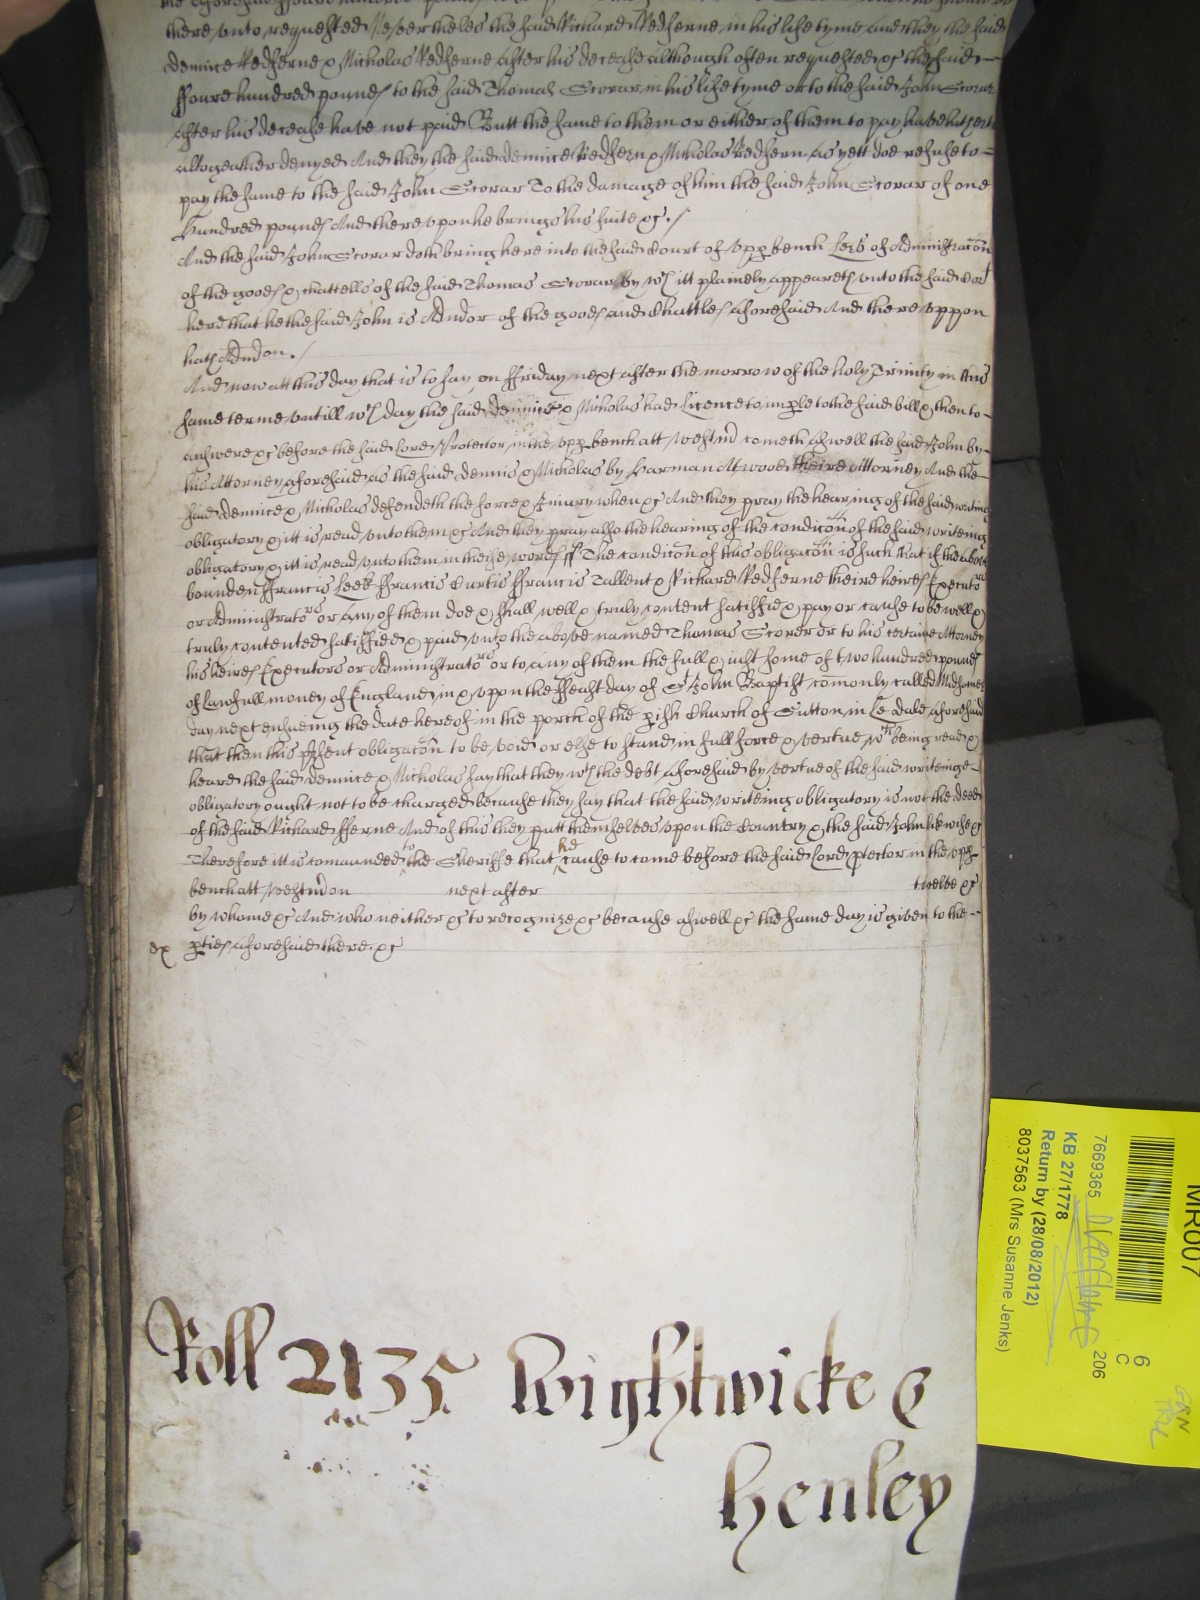 there vnto requested Neverthelesse the said Richard Redferne in his life tyme and they the said
Dennice Redferne & Nicholas Redferne after his decease although often requested &c the said
ffoure hundred pounds to the said Thomas Scorar in his life tyme or to the said John Scorar
after his decease have not paid Butt the same to them or either of them to pay have hitherto
altogeather denyed And they the said Dennice Redfern & Nicholas Redfern as yett doe refuse to
pay the same to the said John Scorar To the damage of him the said John Scorar of one
hundred pounds And there vpon he brings his suite &c./
And the said John Scorar doth bring here into the said Court of vpp bench Lers of Administracon
of the goods & chattells of the said Thomas Scorar by wch itt plainely appeareth vnto the said Cort
here that he the said John is Admdor of the goods and Chattles aforesaid And there vppon
hath Admdon./
And now att this day that is to say on ffriday next after the morrow of the holy Trinity in this
same terme vntill wch day the said Dennice & Nicholas had Licence to imparle to the said bill & then to
answere &c before the said Lord Protector in the vpp bench att westmr cometh aswell the said John by
his Attorney aforesaid as the said Dennis & Nicholas by Harman Atwood theire Attorney And the
said Dennice & Nicholas defendeth the force & Iniury when &c And they pray the hearing of the said writing
obligatory & itt is read vnto them &c And they pray also the hearing of the condicon of the said writeing
obligatory & itt is read vnto them in theise words ss The condicon of this obligacon is such that if the above
bounden ffrancis Leek ffrancis Curtis ffrancis Tallent & Richard Redferne theire heires Executrs
or Administratrs or any of them doe & shall well & truly content satisfie & pay or cause to be well &
truly contented satisfied & paid vnto the above named Thomas Scorer or to his certaine Attorney
his heires Executors or Administratrs or to any of them the full & iust some of two hundred pounds
of Lawfull money of England in & vppon the ffeast day of St John Baptist comonly called Midsomer
day next ensueing the date hereof in the porch of the pish Church of Sutton in Le dale aforesaid
that then this psent obligacon to be void or else to stand in full force & vertue wch being read &
heard the said Dennice & Nicholas say that they wth the debt aforesaid by vertue of the said writeinge
obligatory ought not to be charged because they say that the said writeing obligatory is not the deed
of the said Richard fferne And of this they putt themselves vpon the Country & the said John likewise &c
Therefore itt is comanded to the Sheriffe that he cause to come before the said Lord ptector in the vpp
bench att westmdon next after twelve &c
by whome &c And who neither &c to recognize &c because aswell &c the same day is given to the
ex pties aforesaid there &c
Roll 2135 Wightwicke &
Henley
MR007
7669365
KB 27/1778
Return by (28/08/2012)
8037563 (Mrs Susanne Jenks)
206
6
C